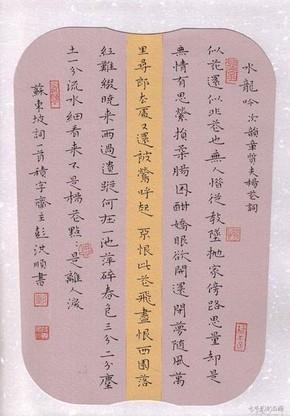 水龍吟次韻章質夫楊花詞
似花還似非花也無人惜從教墜拋家傍路思量卻是
無情有思縈損柔腸困酣嬌眼欲開還閉夢隨風萬
里尋郎去處又還被鶯呼起 不恨此花飛盡恨西園落
紅難綴曉來雨過遺蹤何在一池萍碎春色三分二分塵
土一分流水細看來不是楊花點點是離人淚
蘇東坡詞一首積字齋主彭洪順書